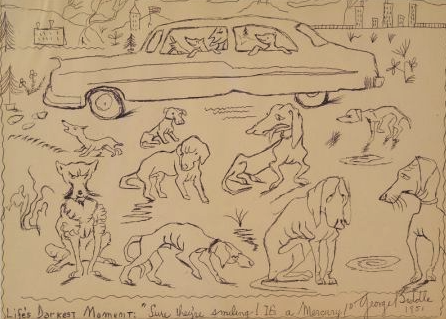 Life's Darkest Moment: "Sure they're smiling! It's a Mercury!" George Biddle
1951